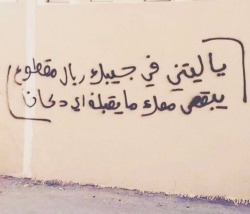 ياليتني في جيبك ريال مقطوع
يبقى معك ما يقبله اي دكان